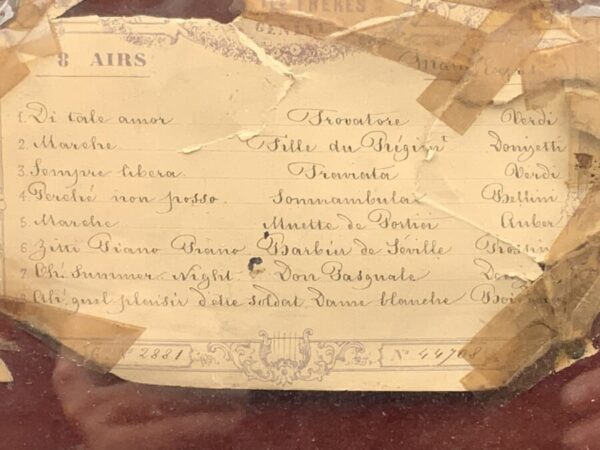 FRÈRES
GENÈVE
8 AIRS
1. Di tale amor Trovatore Verdi
2. Marche Fille du Régimt Donizetti
3. Sempre libera Traviata Verdi
4. Perché non posso Sonnambula Bellini
5. Marche Muette de Portici Auber
6. Zitti Piano Piano Barbier de Séville Rossini
7. Oh! Summer Night. Don Pasquale
8. Ah! quel plaisir d'être soldat Dame blanche
No 2881 No 44708